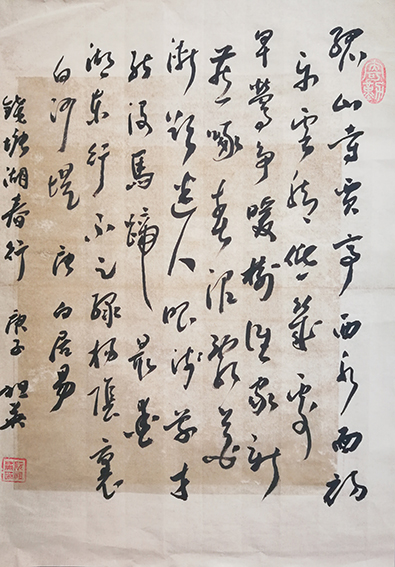 孤山寺賈亭西水面初
平雲腳低幾處
早鶯爭暖樹誰家新
燕啄春泥亂花
漸欲迷人眼淺草才
能沒馬蹄最愛
湖東行不足綠楊陰裏
白沙堤 唐白居易
錢塘湖春行 庚子